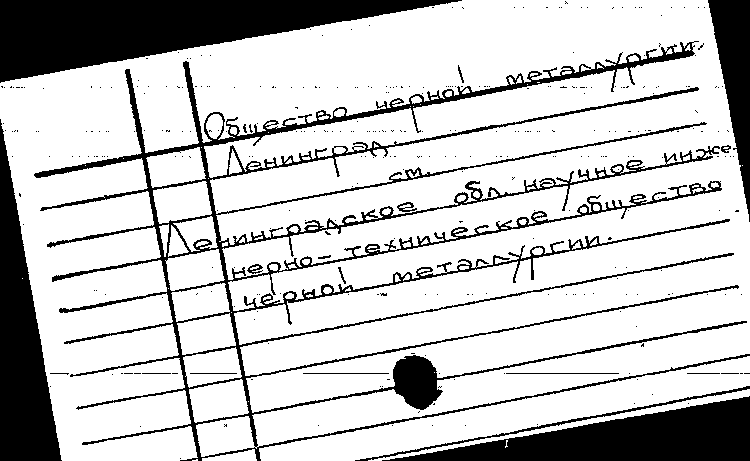 Общество черной металлургии.
Ленинград.
см.
Ленинградское обл. научное инже-
нерно-техническое общество
черной металлургии.